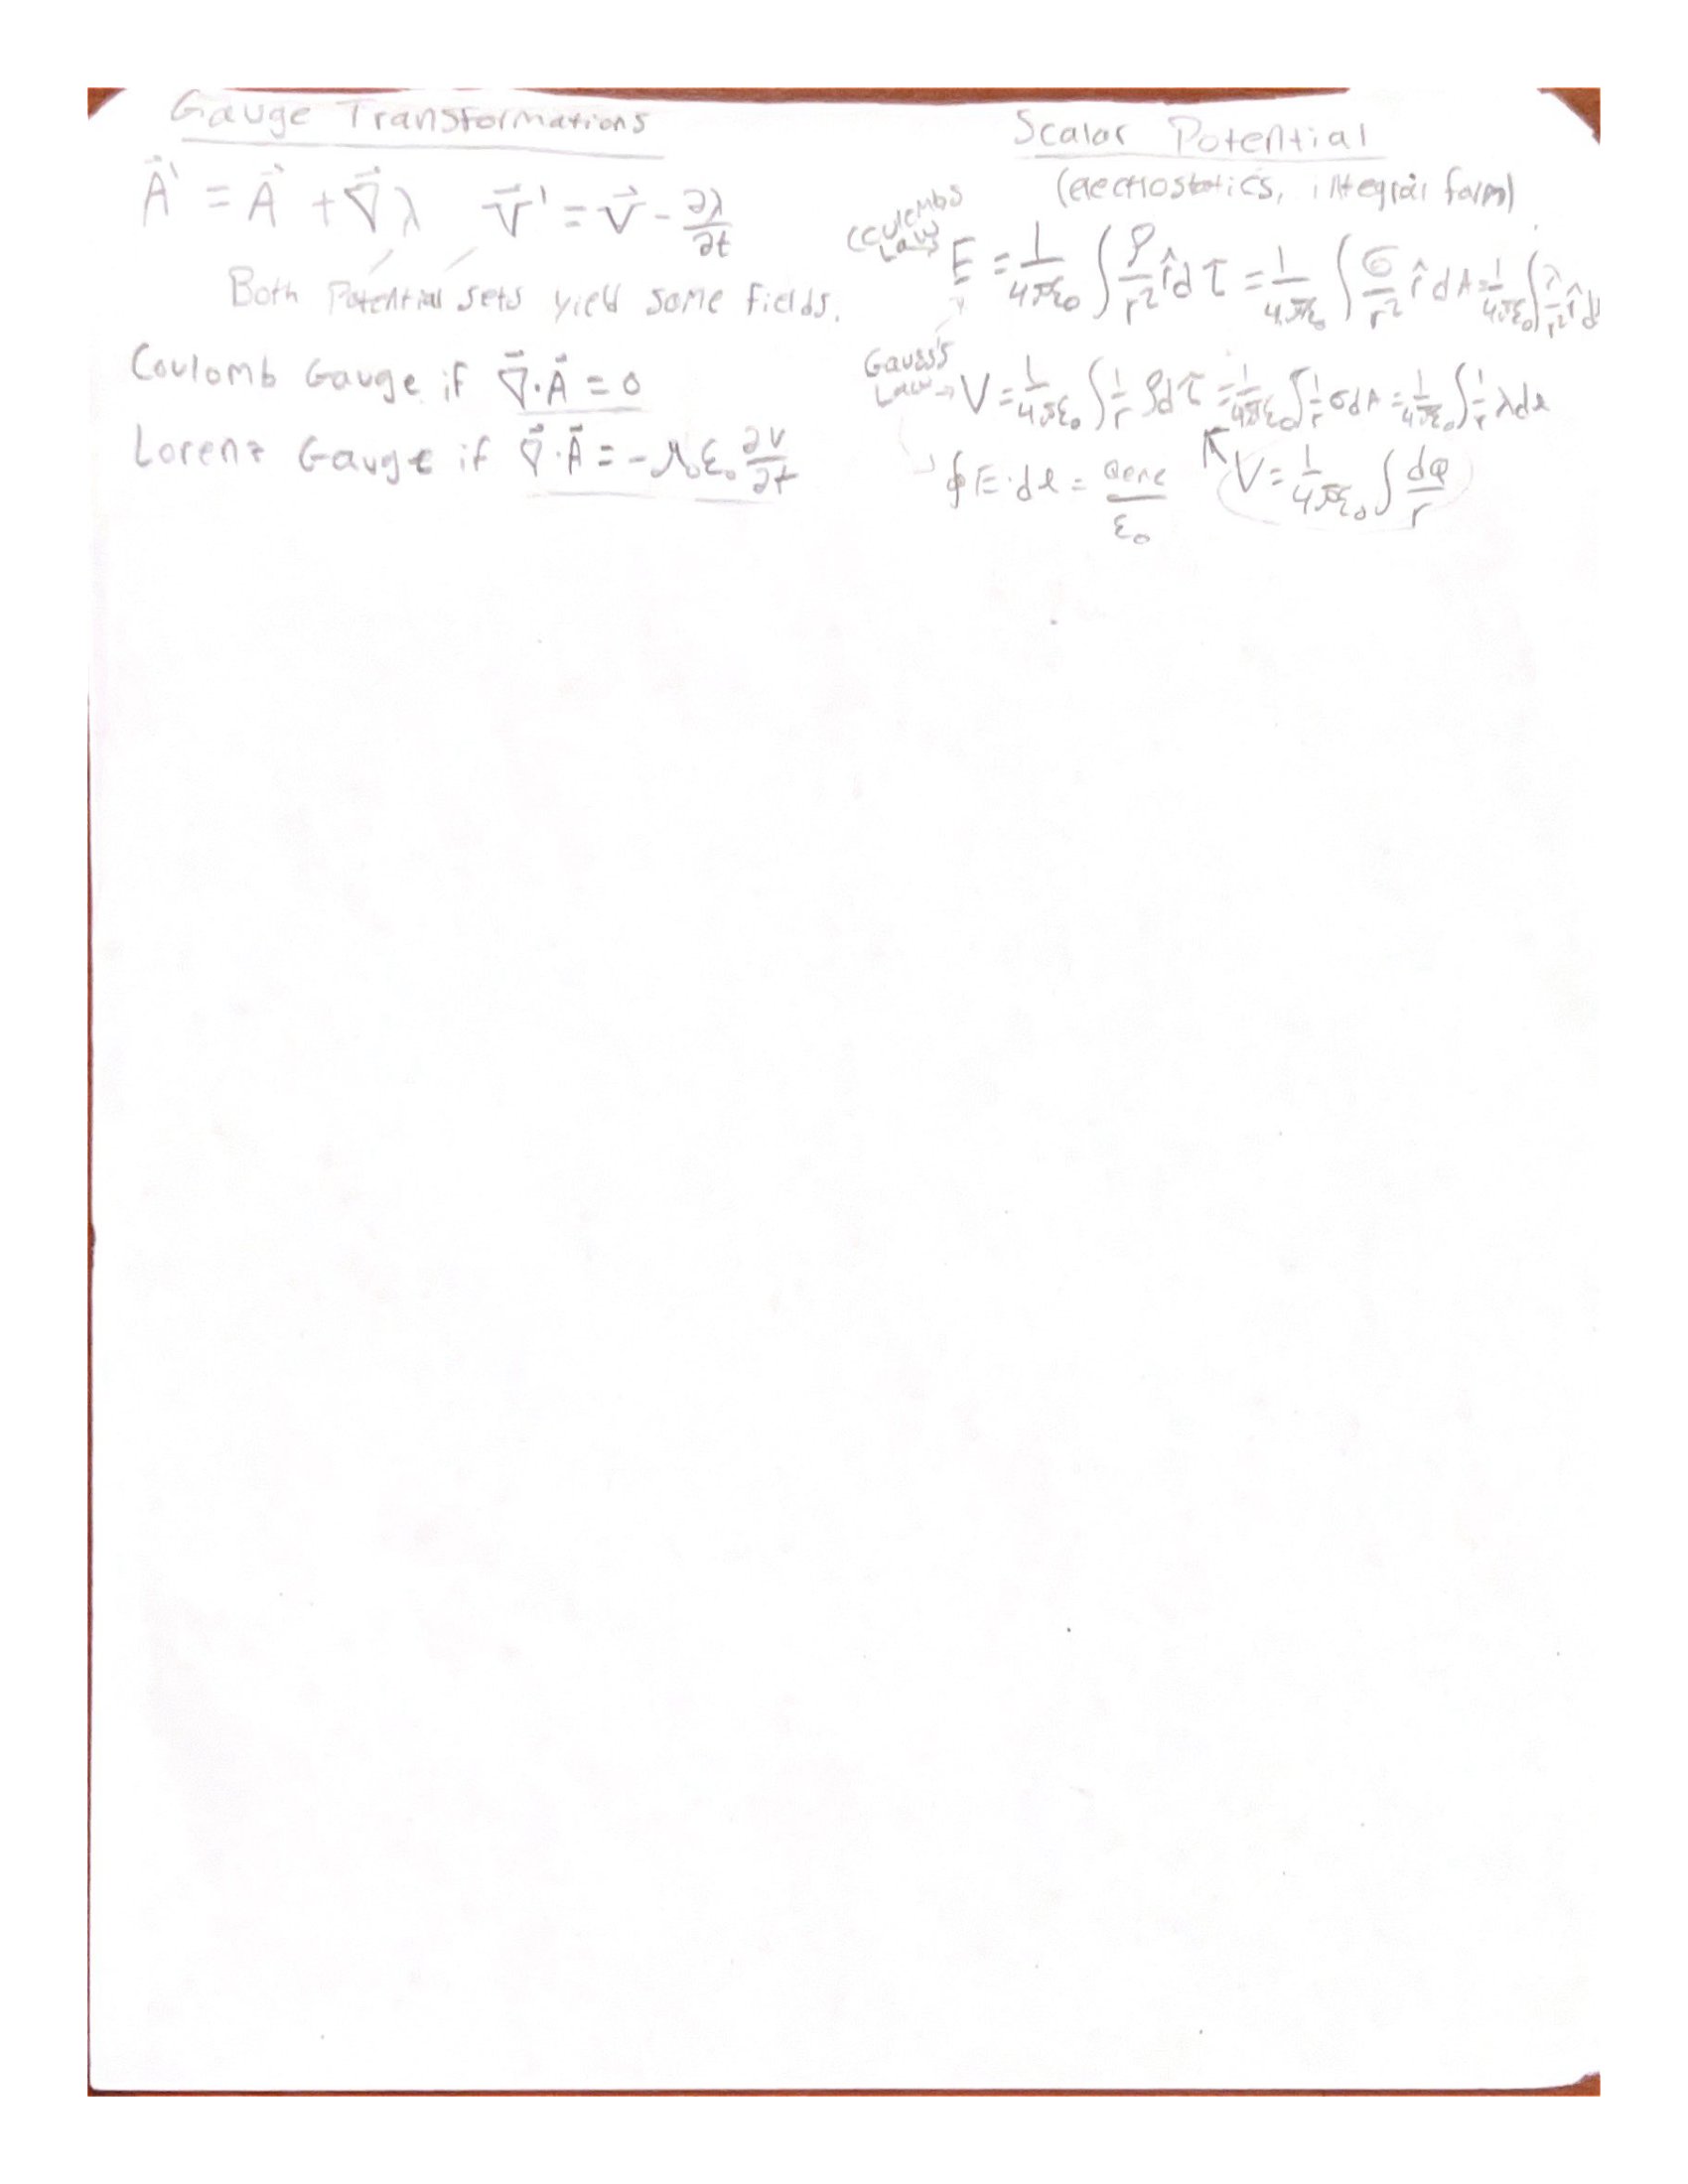 Gauge Transformations
A⃗' = A⃗ + ∇⃗λ   V⃗' = V⃗ - ∂λ/∂t
Both Potential sets yield same fields.
Coulomb Gauge if ∇⃗·A⃗ = 0
Lorenz Gauge if ∇⃗·A⃗ = -μ₀ε₀ ∂V/∂t
Scalar Potential
(electrostatics, integral form)
Coulombs Law → E = 1/4πε₀ ∫ ρ/r² r̂ dτ = 1/4πε₀ ∫ σ/r² r̂ dA = 1/4πε₀ ∫ λ/r² r̂ d
Gauss's Law → V = 1/4πε₀ ∫ 1/r ρdτ = 1/4πε₀ ∫ 1/r σdA = 1/4πε₀ ∫ 1/r λdl
∮ E·dl = Qenc/ε₀   V = 1/4πε₀ ∫ dq/r